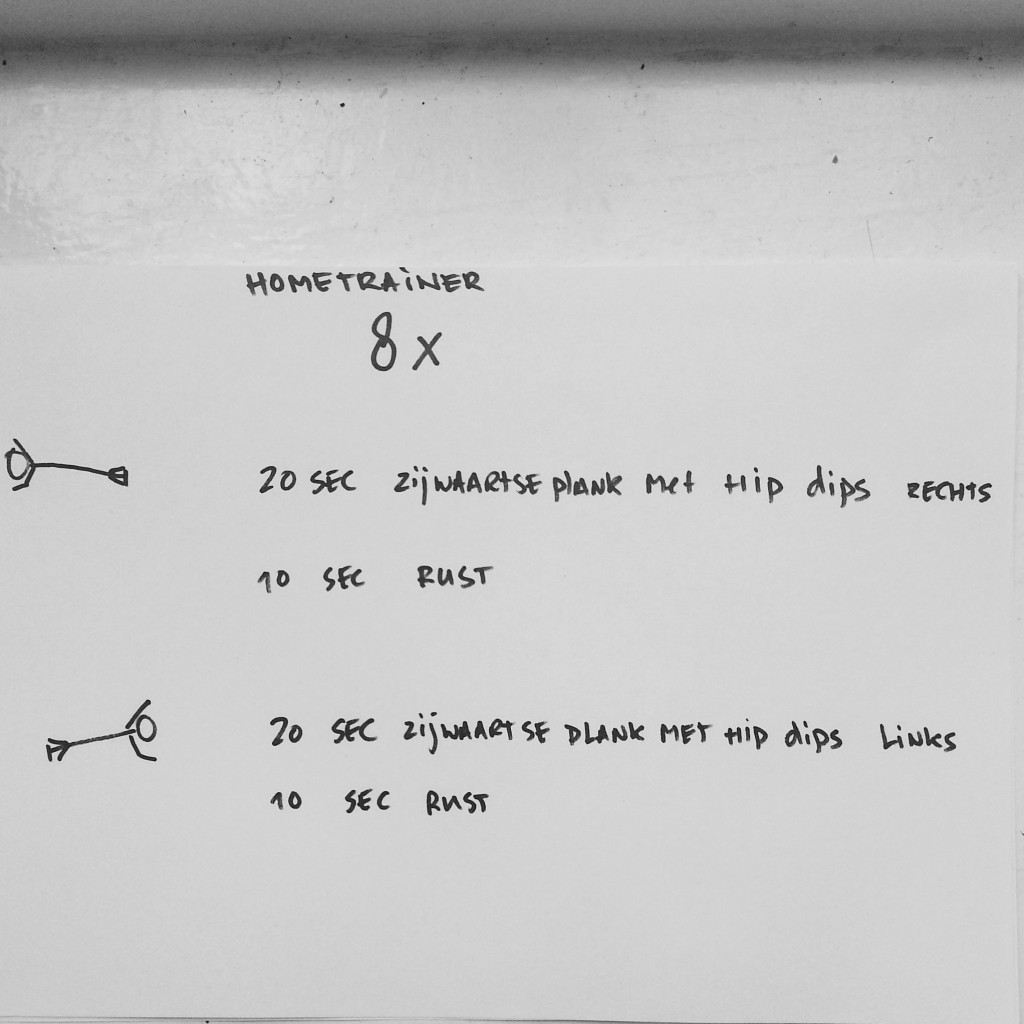 HOMETRAINER
8 x
20 SEC zijWAARtSE plANK Met Hip dips RECHtS
10 SEC RUST
20 SEC zijWAARTSE PLANK MET Hip dips LiNKS
10 SEC RUST